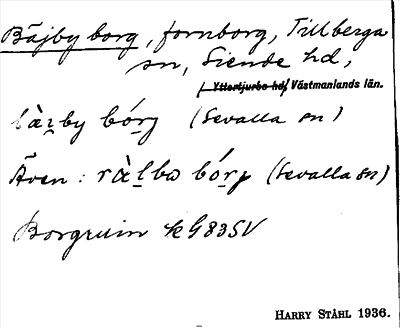 Bäjby borg, fornborg, Tillberga
sn, Siende hd,
Yttertjurbo hd, Västmanlands län.
by bórg (Sevalla sn)
Även : bórg (Sevalla sn)
Borgruin kG83SV
HARRY STÅHL 1936.